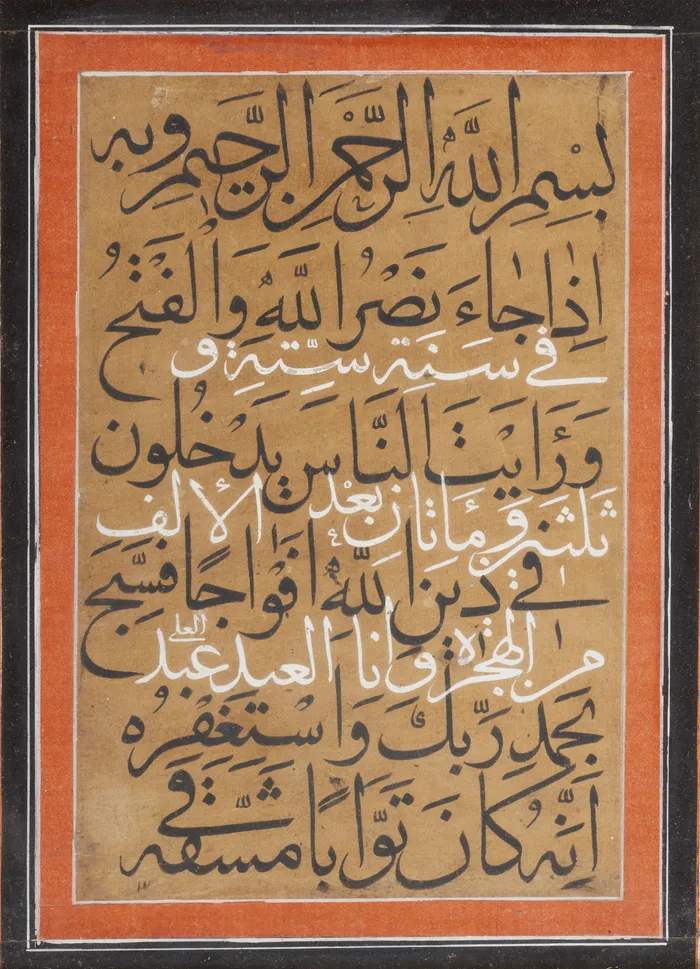 بِسْمِ اللَّهِ الرَّحْمٰنِ الرَّحِيمِ وبه
اِذَا جَاءَ نَصْرُ اللَّهِ وَالْفَتْحُ
فى سَنَةِ سِتَّةٍ و
وَرَاَيْتَ النَّاسَ يَدْخُلُون
ثلثين وَ مأتانِ بَعْد الالف
فى دينِ اللَّهِ اَفْوَاجًا فَسَبِّح
من الهجرة وانا العبد عبد العلى
بِحَمْدِ رَبِّكَ وَاسْتَغْفِرْهُ
اِنَّهُ كَانَ تَوَّابًا مشقه فى